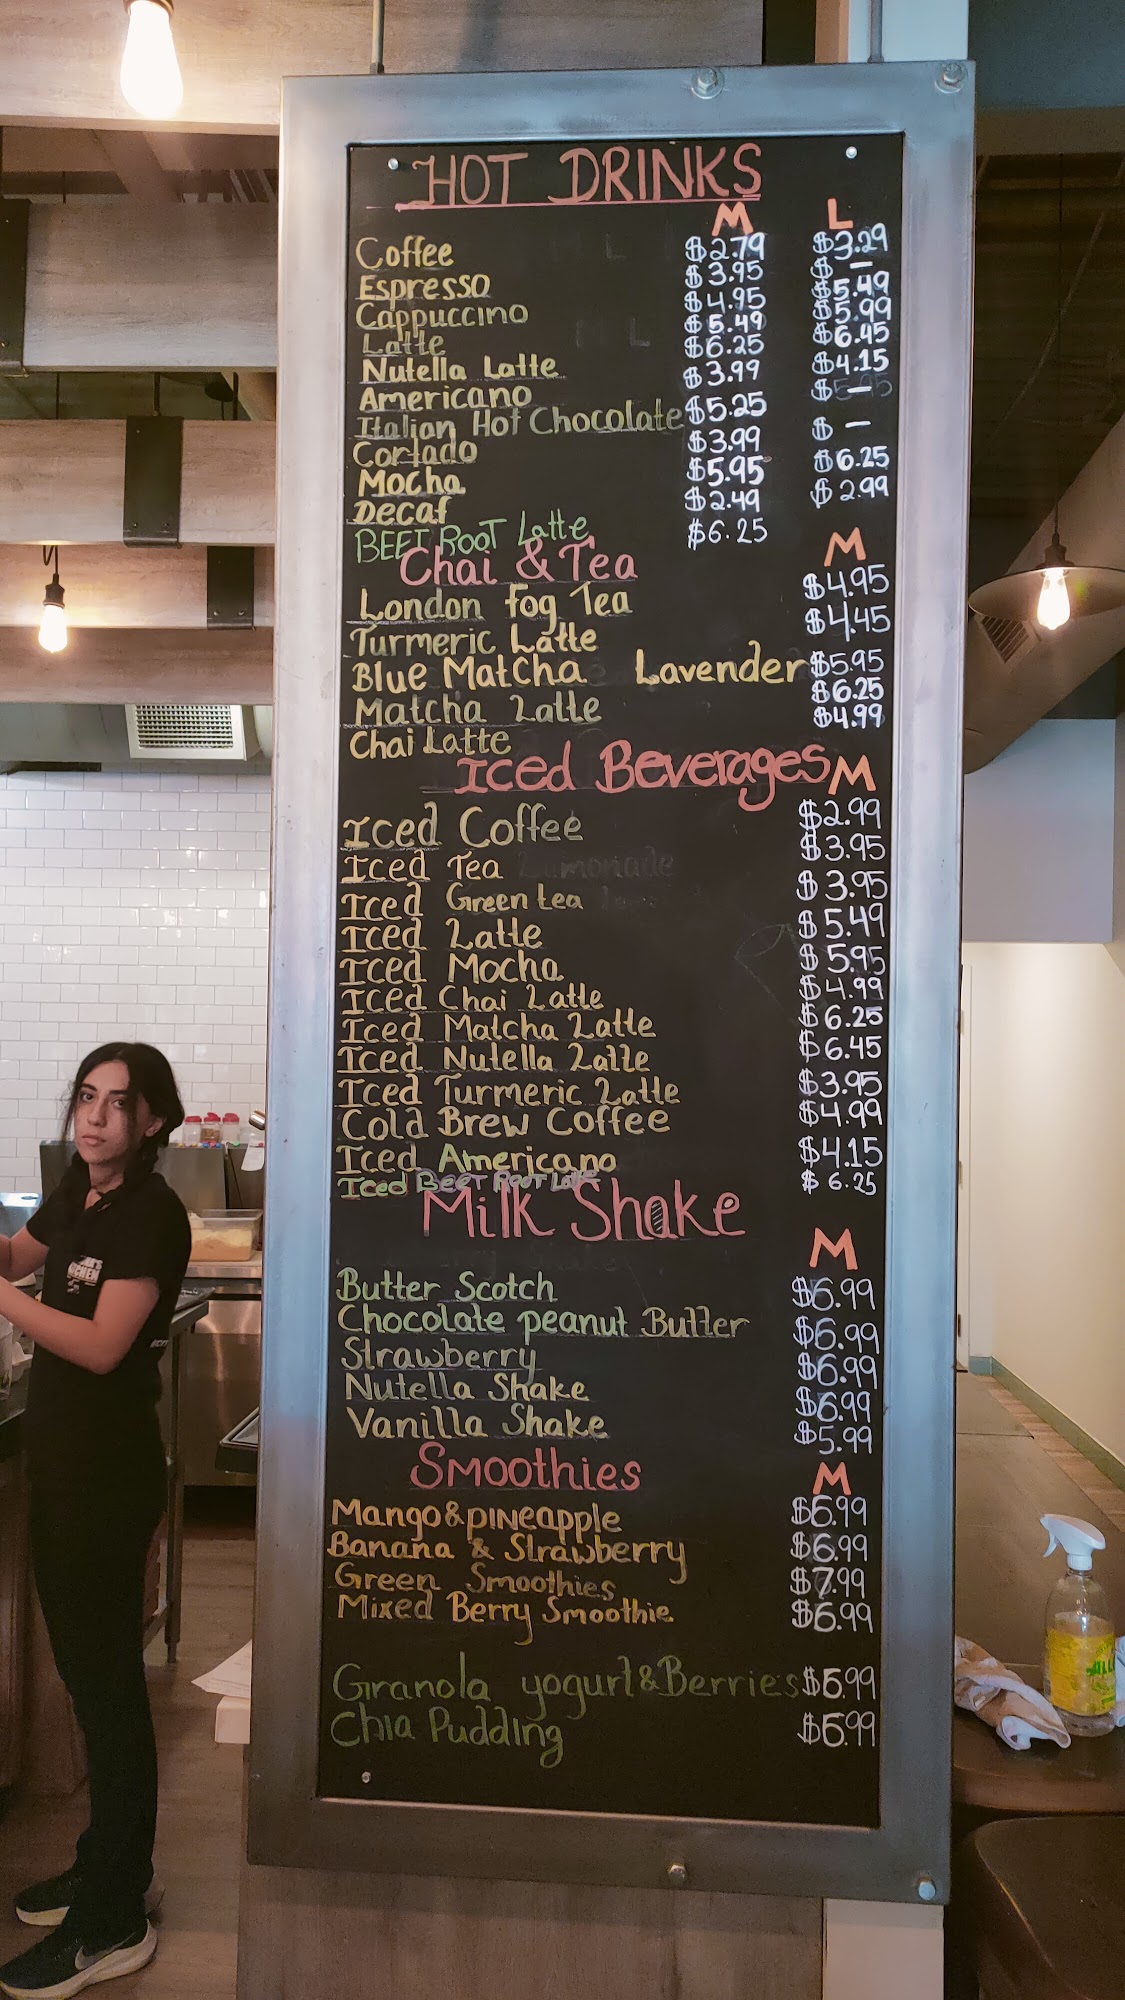 HOT DRINKS
M L
Coffee $2.79 $3.29
Espresso $3.95 $ —
Cappuccino $4.95 $5.49
Latte $5.49 $5.99
Nutella Latte $6.25 $6.45
Americano $3.99 $4.15
Italian Hot Chocolate $5.25 $ —
Cortado $3.99 $ —
Mocha $5.95 $6.25
Decaf $2.49 $2.99
BEET ROOT Latte $6.25
Chai & Tea M
London Fog Tea $4.95
Turmeric Latte $4.45
Blue Matcha Lavender $5.95
Matcha Latte $6.25
Chai Latte $4.99
Iced Beverages M
Iced Coffee $2.99
Iced Tea $3.95
Iced Green tea $3.95
Iced Latte $5.49
Iced Mocha $5.95
Iced Chai Latte $4.99
Iced Matcha Latte $6.25
Iced Nutella Latte $6.45
Iced Turmeric Latte $3.95
Cold Brew Coffee $4.99
Iced Americano $4.15
Iced BEET ROOT Latte $6.25
Milk Shake
M
Butter Scotch $6.99
Chocolate peanut Butter $6.99
Strawberry $6.99
Nutella Shake $6.99
Vanilla Shake $5.99
Smoothies M
Mango & pineapple $6.99
Banana & Strawberry $6.99
Green Smoothies $7.99
Mixed Berry Smoothie $6.99
Granola yogurt & Berries $6.99
Chia Pudding $6.99